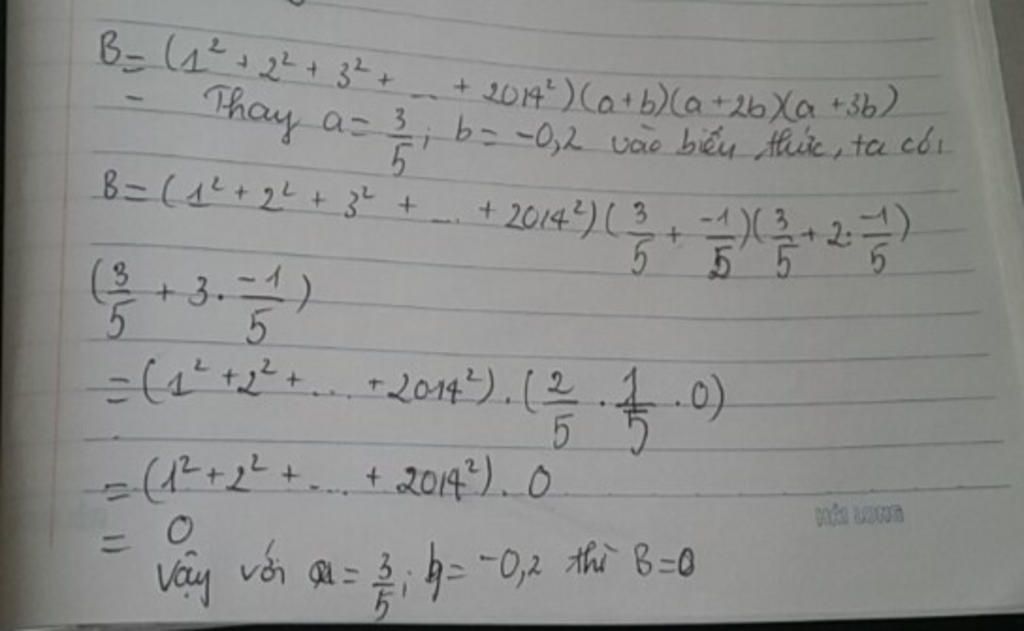 B = (1² + 2² + 3² + ... + 2014²)(a+b)(a+2b)(a+3b)
- Thay a = 3/5; b = -0,2 vào biểu thức, ta có:
B = (1² + 2² + 3² + ... + 2014²)(3/5 + -1/5)(3/5 + 2.-1/5)
(3/5 + 3.-1/5)
= (1² + 2² + ... + 2014²).(2/5 . 1/5 . 0)
= (1² + 2² + ... + 2014²). 0
HẢI LONG
= 0
Vậy với a = 3/5; b = -0,2 thì B = 0